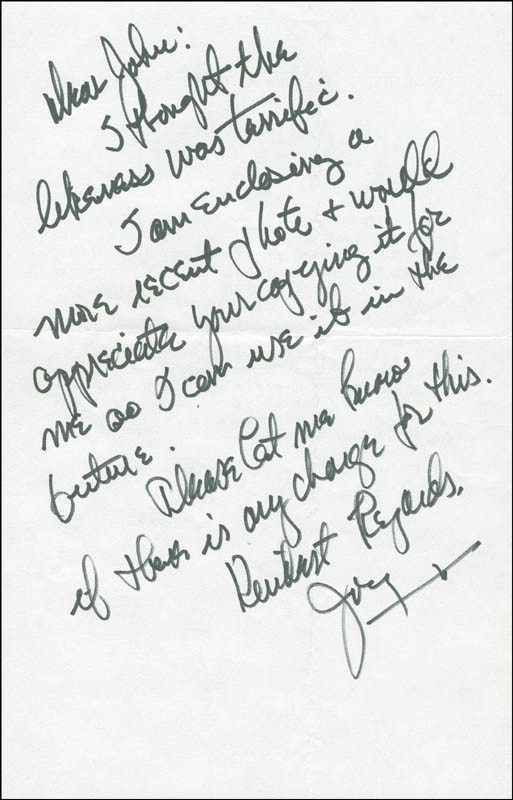 Dear John:
I thought the
likeness was terrific.
I am enclosing a
more recent photo & would
appreciate your copying it for
me so I can use it in the
future.
Please let me know
if there is any charge for this.
Kindest Regards,
Joey